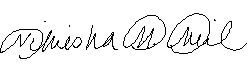 Nimesha M Neil